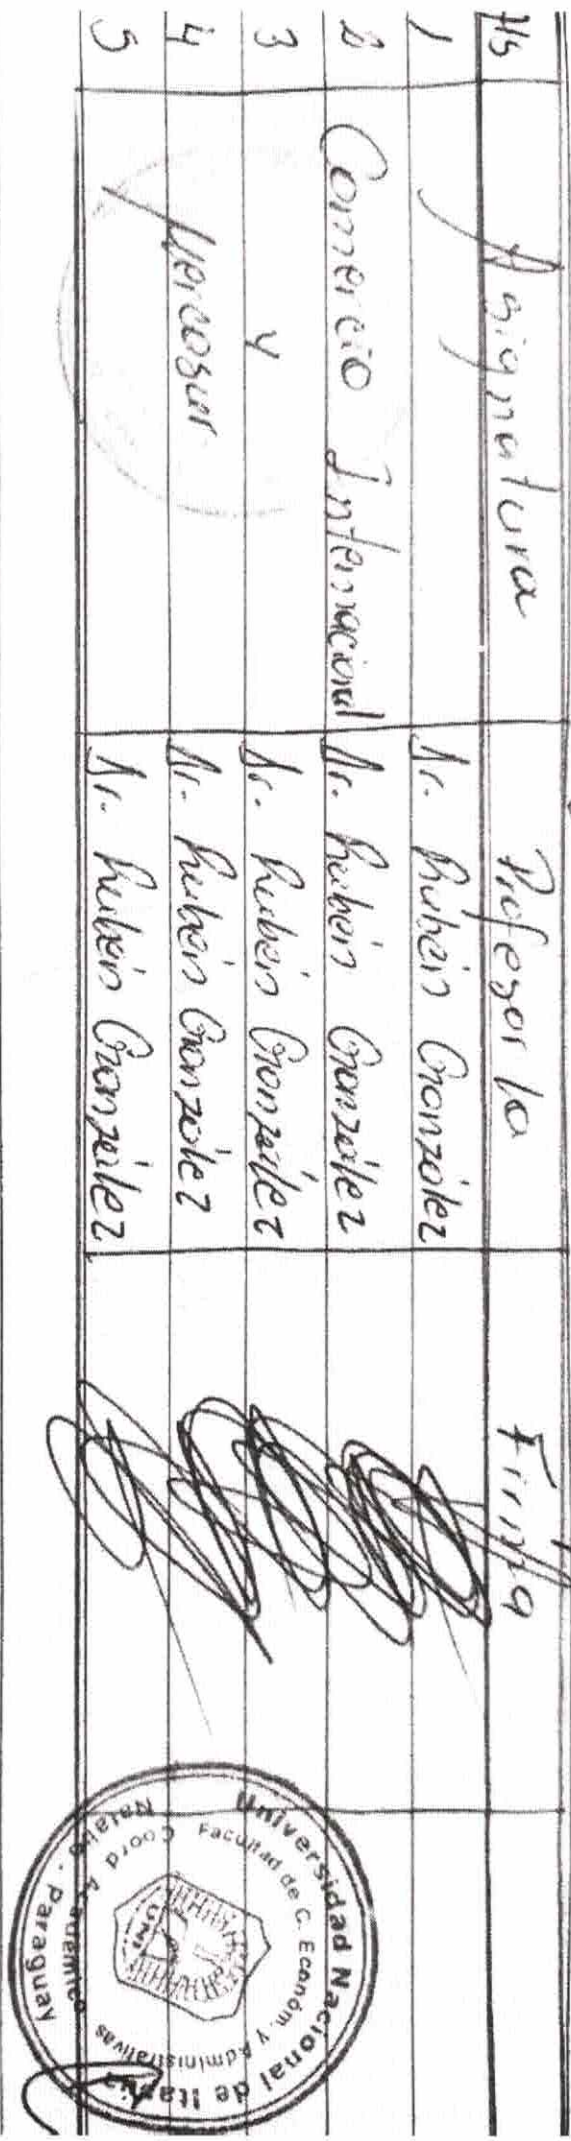 Hs Asignatura Profesor/a Firma
1 Dr. Rubén González
2 Comercio Internacional Dr. Rubén González
3 y Dr. Rubén González
4 Mercosur Dr. Rubén González
5 Dr. Rubén González
Universidad Nacional de Itapúa
Facultad de C. Econom. y Administrativas
Coord Académica
Natalio - Paraguay
UNI